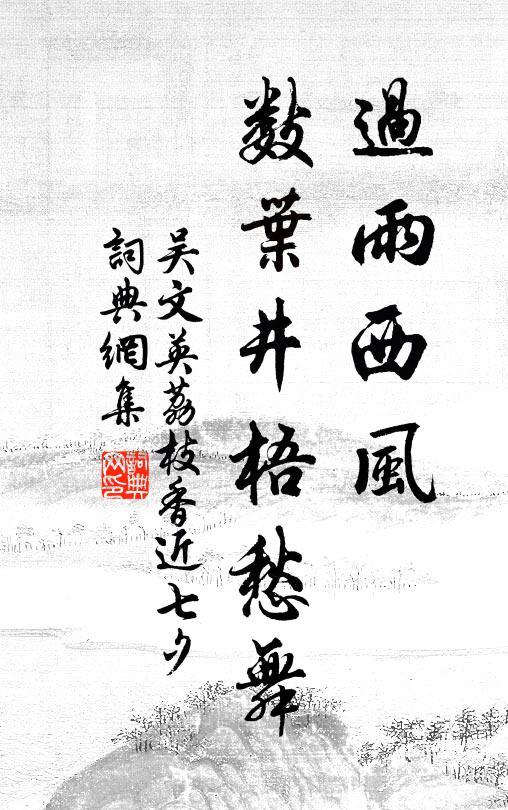 過雨西風
數葉井梧愁舞
吴文英荔枝香近七夕
詞典網集
詞典網印